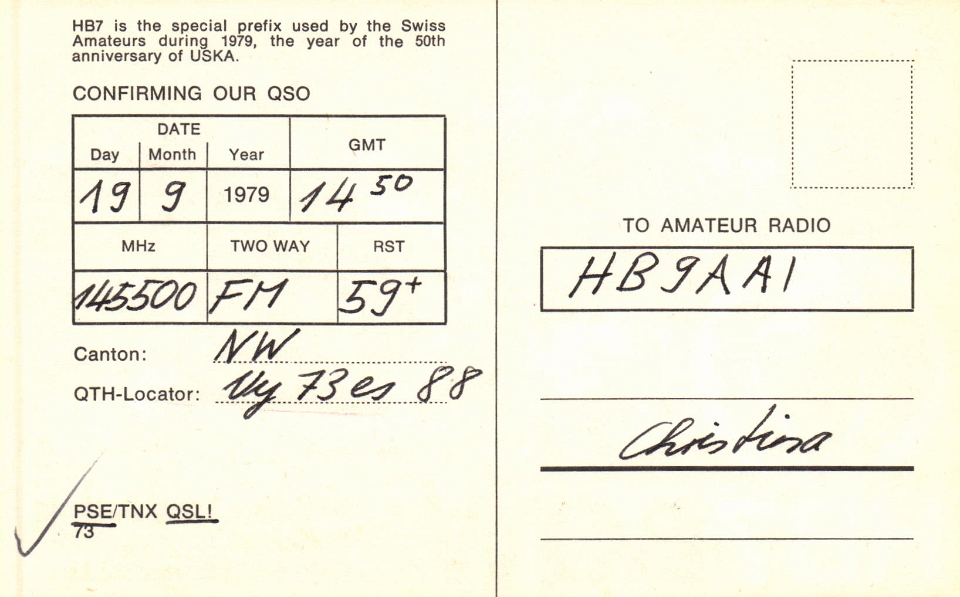 HB7 is the special prefix used by the Swiss
Amateurs during 1979, the year of the 50th
anniversary of USKA.
CONFIRMING OUR QSO
DATE
Day Month Year GMT
19 9 1979 14 50
MHz TWO WAY RST
145500 FM 59+
Canton: NW
QTH-Locator: Vy 73 es 88
PSE/TNX QSL!
73
TO AMATEUR RADIO
HB9AAI
Christina